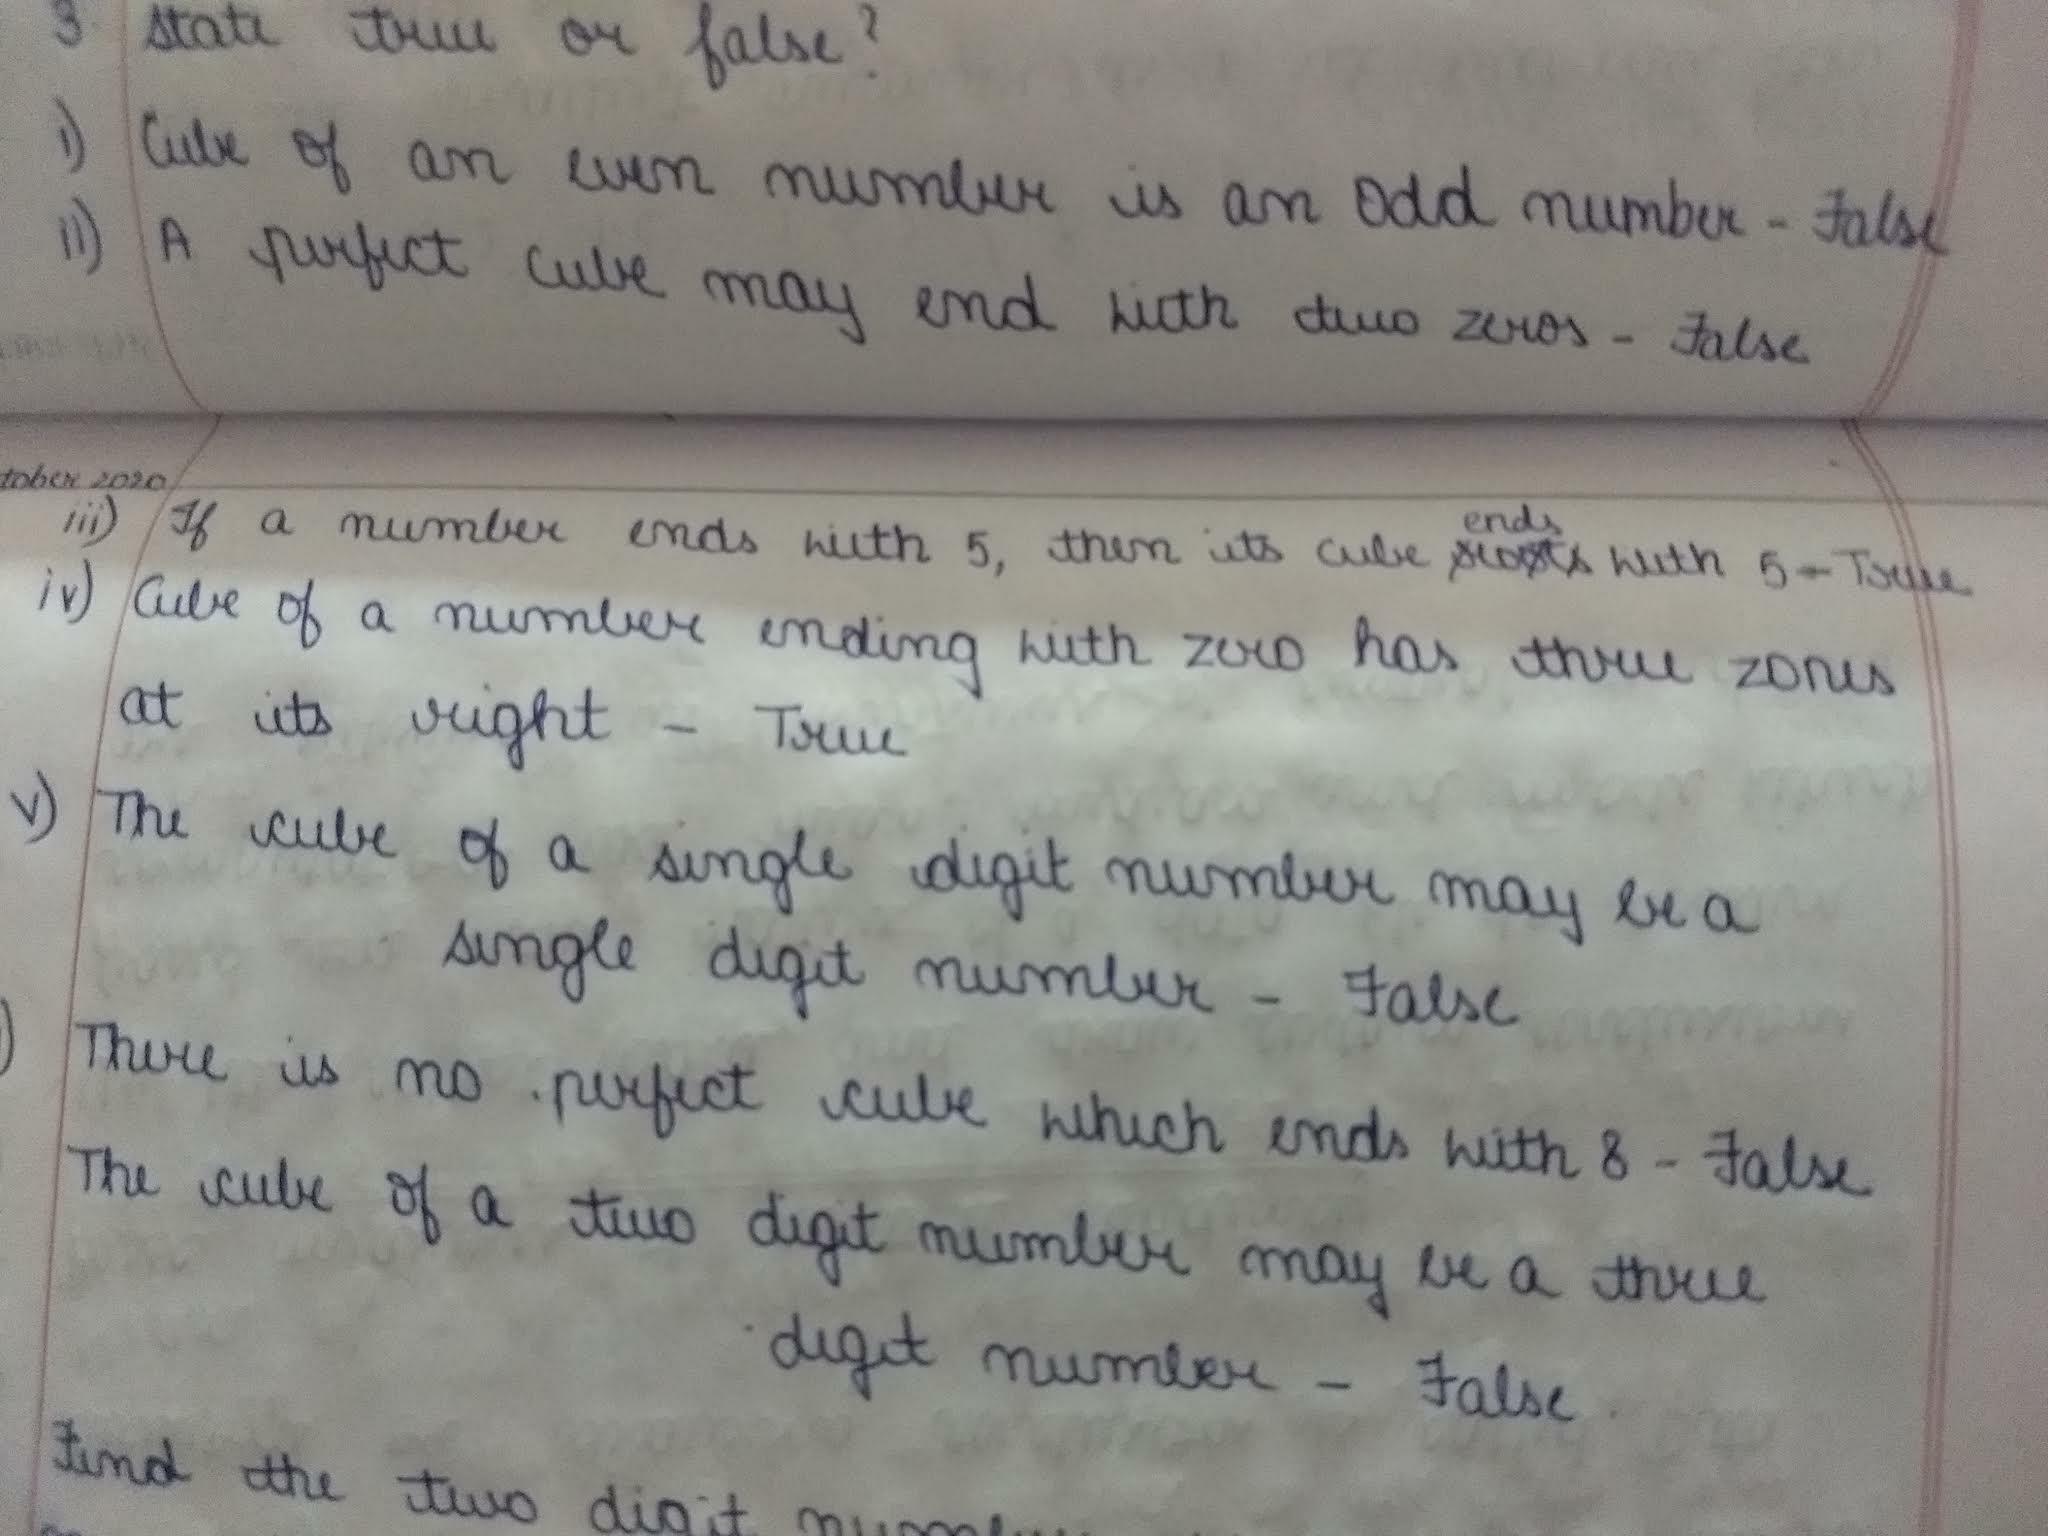 3 State true or false?
i) Cube of an even number is an odd number - False
ii) A perfect cube may end with two zeros - False
tober 2020
iii) If a number ends with 5, then its cube ends with 5 - True
iv) Cube of a number ending with zero has three zones
at its right - True
v) The cube of a single digit number may be a
single digit number - False
) There is no perfect cube which ends with 8 - False
The cube of a two digit number may be a three
digit number - False
Find the two digit